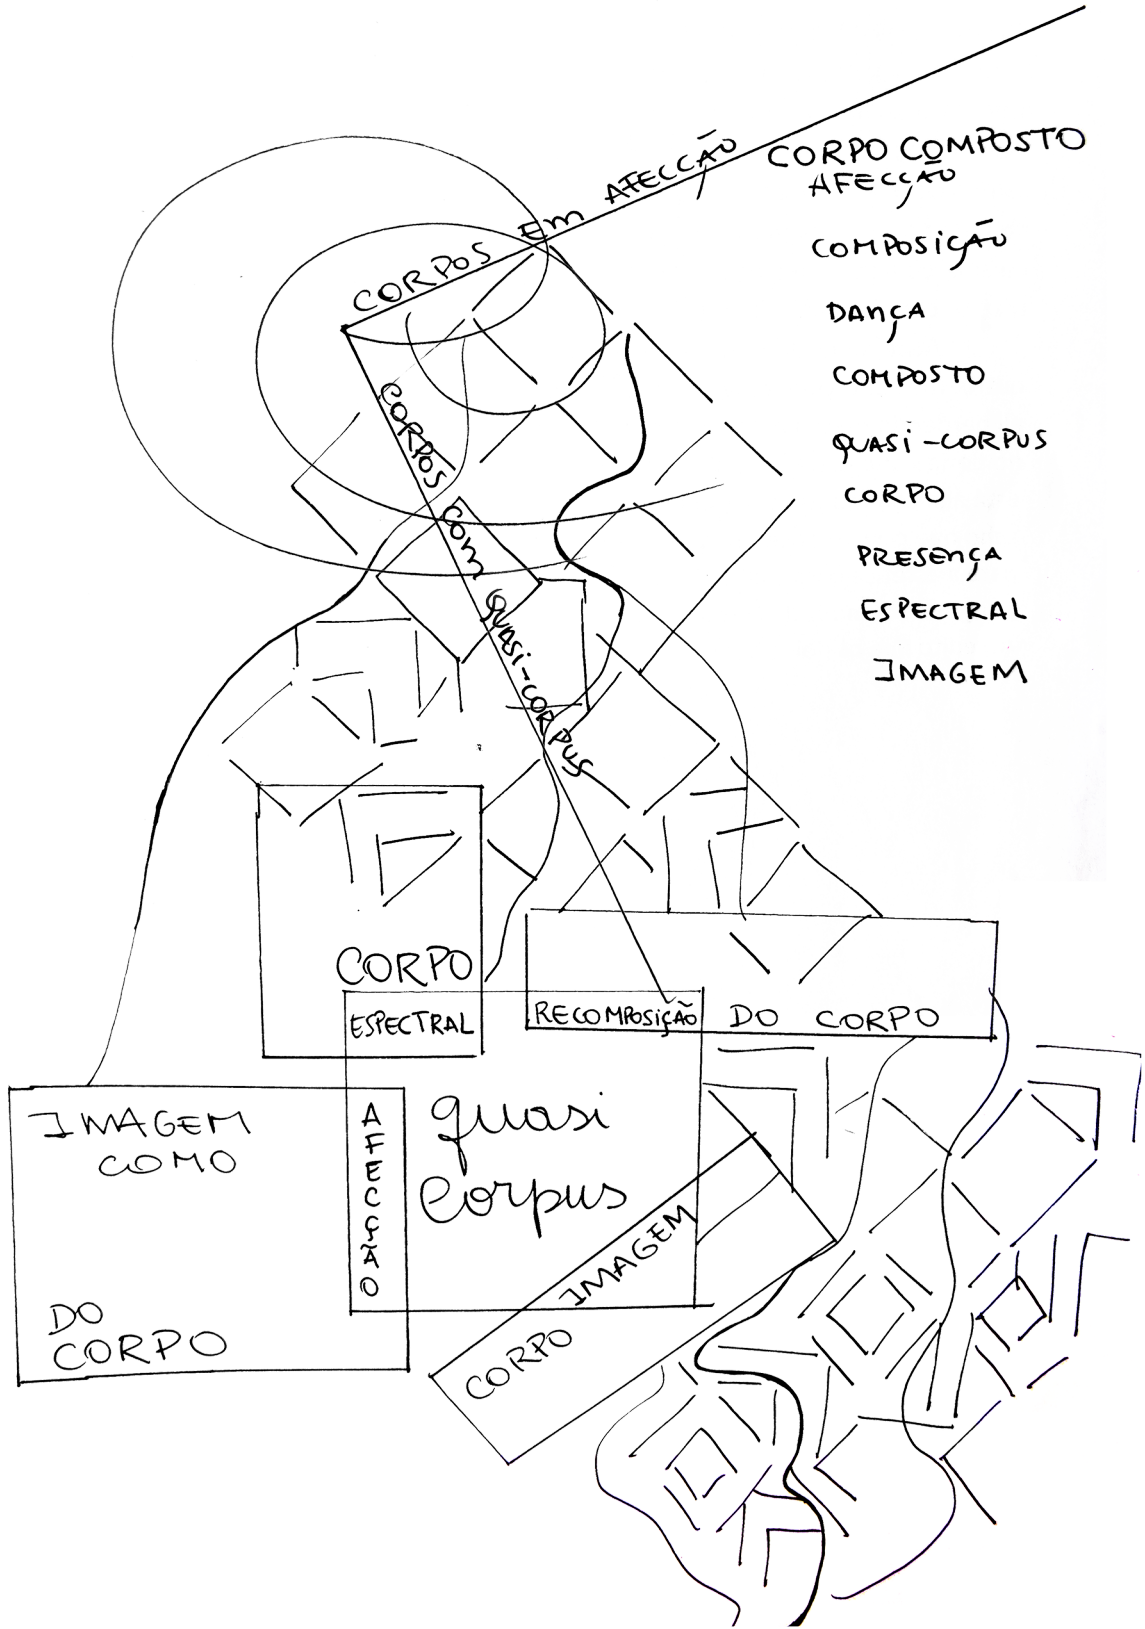 CORPOS Em AFECÇÃO
CORPO COMPOSTO
AFECÇÃO
COMPOSIÇÃO
DANÇA
COMPOSTO
QUASI-CORPUS
CORPO
PRESENÇA
ESPECTRAL
IMAGEM
CORPOS COM QUASI-CORPUS
CORPO
ESPECTRAL
RECOMPOSIÇÃO DO CORPO
IMAGEM
COMO
AFECÇÃO
DO
CORPO
quasi
Corpus
CORPO IMAGEM